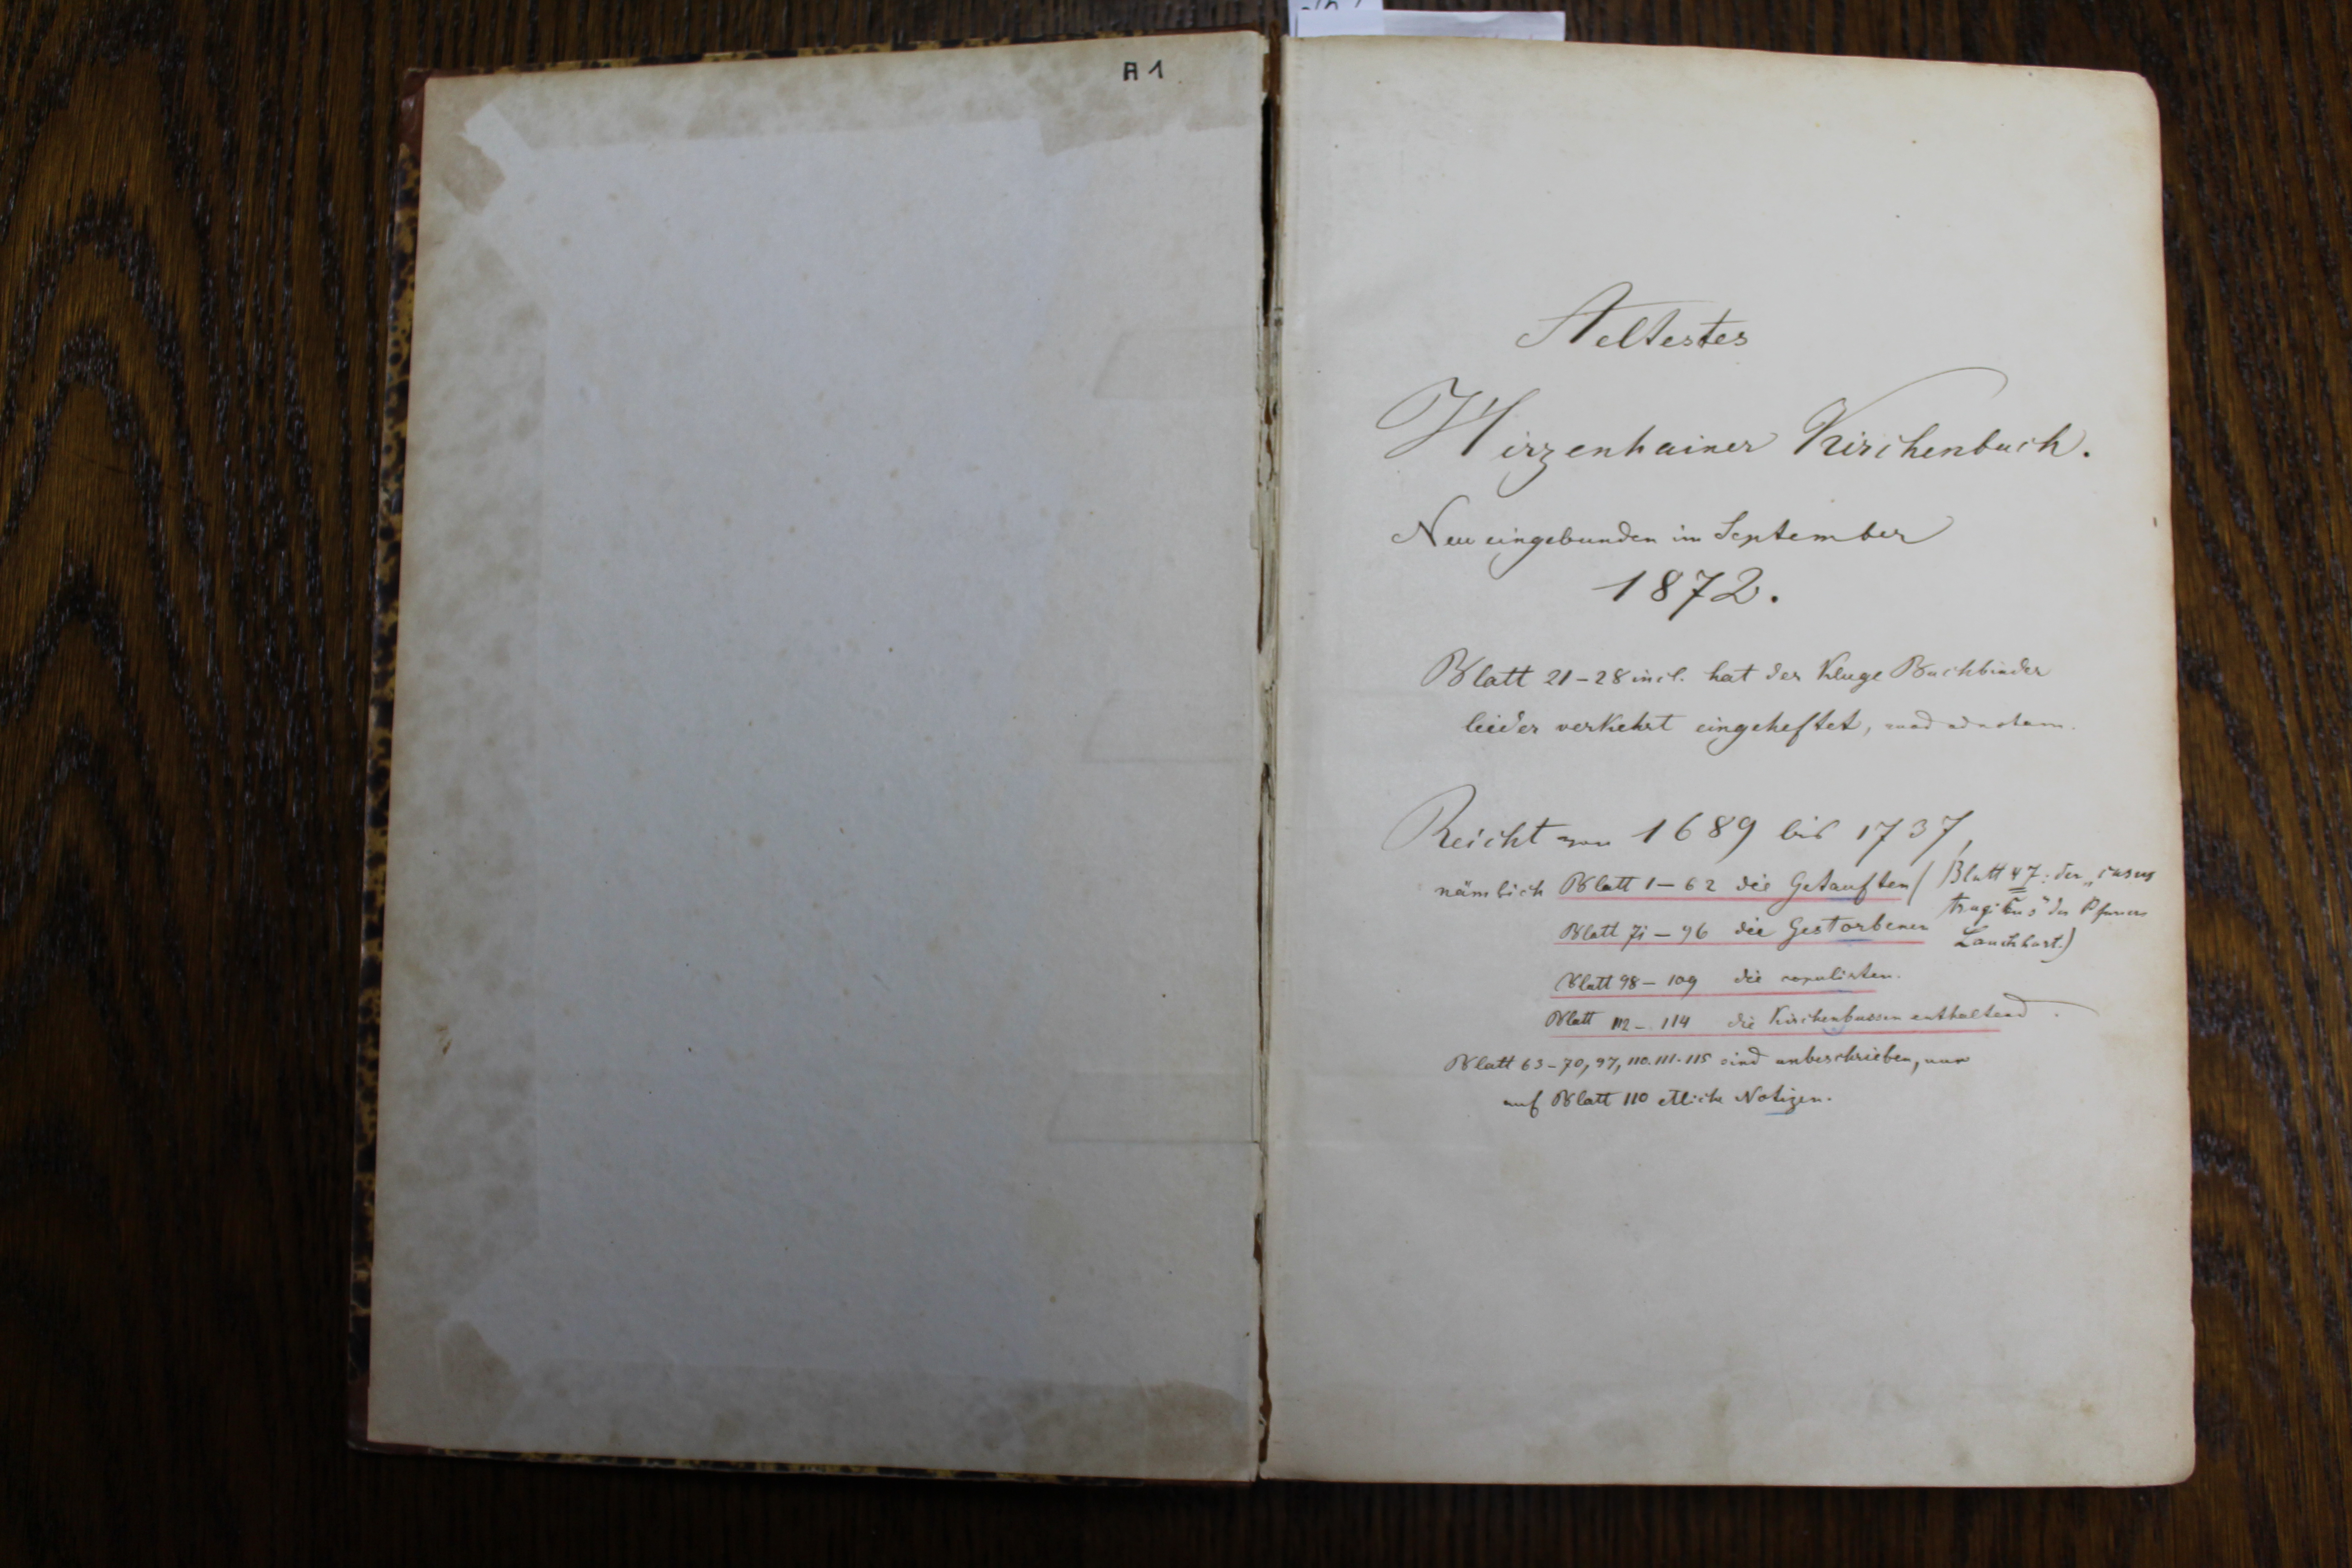 A 1
Aeltestes
Hirzenhainer Kirchenbuch.
Neu eingebunden im September
1872.
Blatt 21–28 incl. hat der kluge Buchbinder
leider verkehrt eingeheftet, quod ad notam.
Reicht von 1689 bis 1737,
nämlich Blatt 1–62 die Getauften (Blatt 47: der „casus
tragicus" des Pfarrers
Blatt 71–96 die Gestorbenen
Lauckhart.)
Blatt 98–109 die copulirten.
Blatt 112–114 die Kirchenbussen enthaltend.
Blatt 63–70, 97, 110. 111. 115 sind unbeschrieben, nur
auf Blatt 110 etliche Notizen.